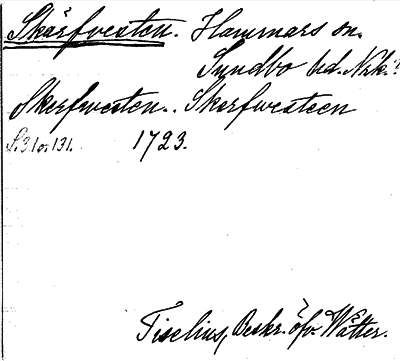 Skärfvesten. Hammars sn.
Sundbo hd. Nrk.
Skerfwesten. Skerfwesteen
s. 31 o. 131. 1723.
Tiselius, Beskr. öfv. Wätter.